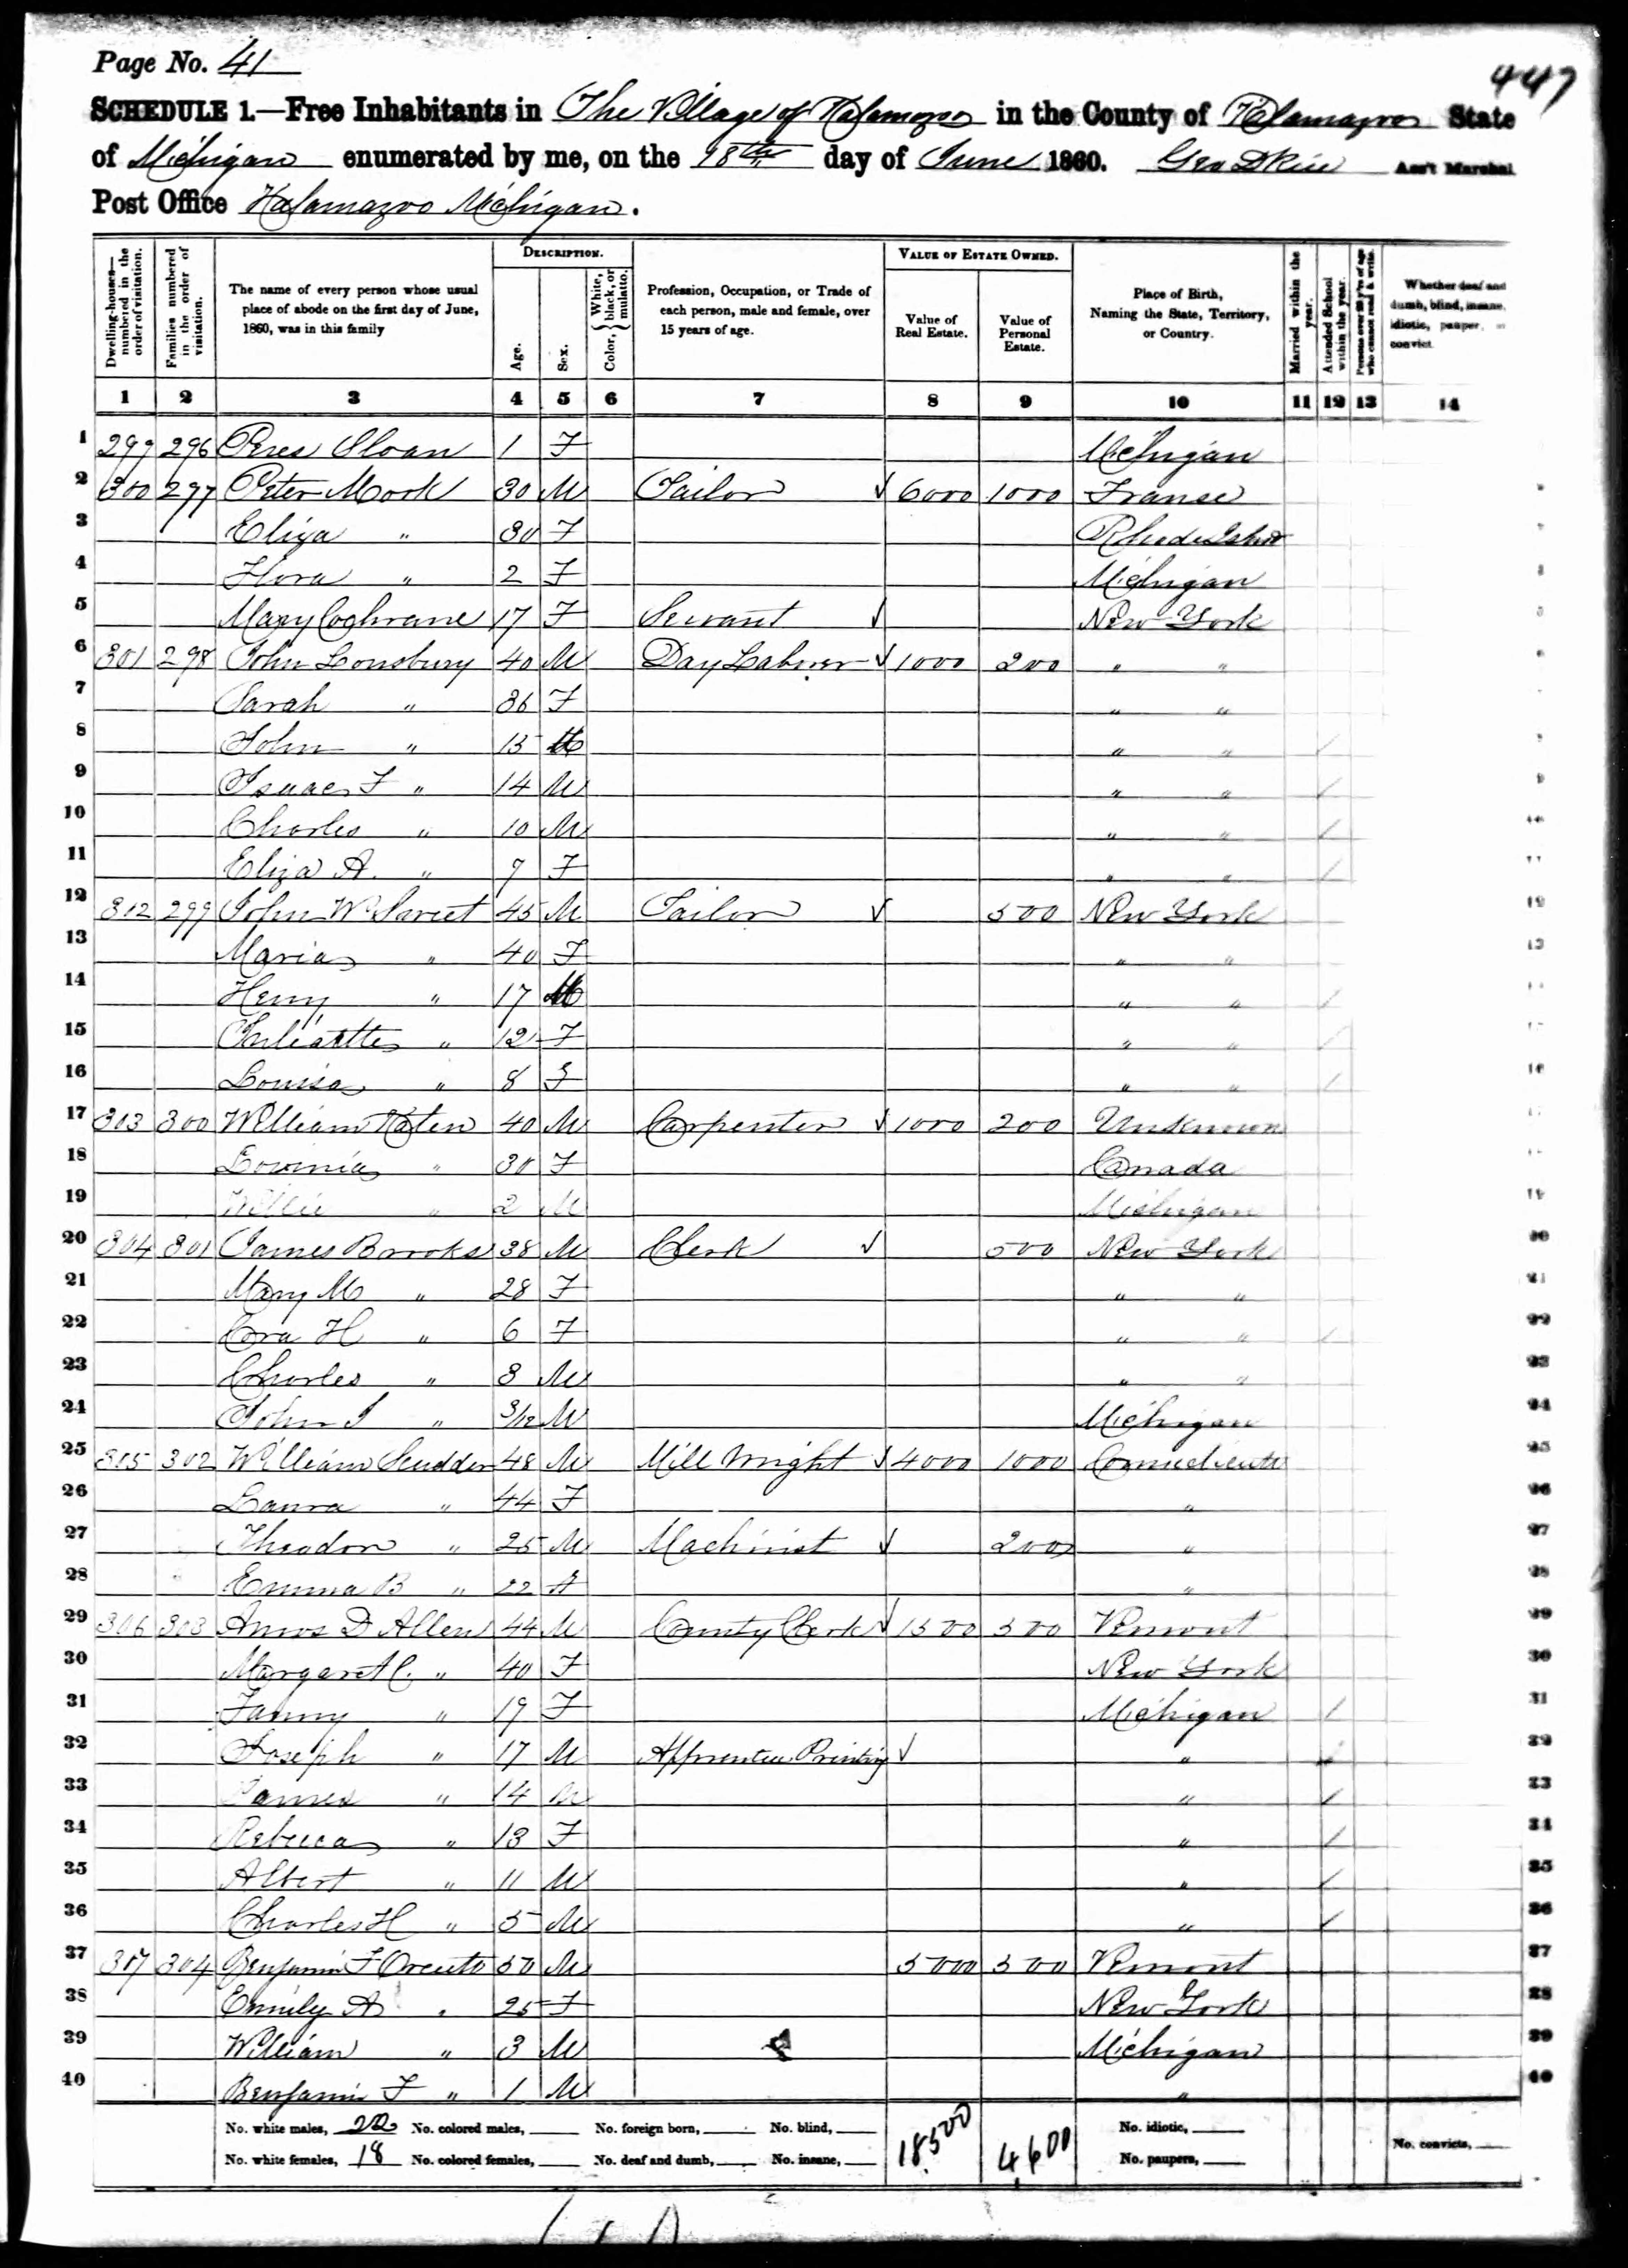 Page No. 41
447
SCHEDULE 1.—Free Inhabitants in The Village of Kalamazoo in the County of Kalamazoo State
of Michigan enumerated by me, on the 18th day of June 1860. Ass't Marshal
Post Office Kalamazoo Michigan.
Dwelling-houses—numbered in the order of visitation. Families numbered in the order of visitation. The name of every person whose usual place of abode on the first day of June, 1860, was in this family DESCRIPTION. Age. Sex. Color, { White, black, or mulatto. Profession, Occupation, or Trade of each person, male and female, over 15 years of age. VALUE OF ESTATE OWNED. Value of Real Estate. Value of Personal Estate. Place of Birth, Naming the State, Territory, or Country. Married within the year. Attended School within the year. Persons over 20 y'rs of age who cannot read & write. Whether deaf and dumb, blind, insane, idiotic, pauper, or convict.
1 2 3 4 5 6 7 8 9 10 11 12 13 14
1 299 296 Sloan 1 F Michigan
2 300 297 Peter Mook 30 M Tailor ✓ 6000 1000 Franse
3 Eliza " 30 F Rhode Island
4 Flora " 2 F Michigan
5 Mary Cochrane 17 F Servant ✓ New York
6 301 298 John Lonsbury 40 M Day Laborer ✓ 1000 200 " "
7 Sarah " 36 F " "
8 John " 15 M " " /
9 Isaac F " 14 M " " /
10 Charles " 10 M " " /
11 Eliza A. " 7 F " " /
12 312 299 John W 45 M Tailor ✓ 500 New York
13 Maria " 40 F " "
14 Henry " 17 M " " /
15 " 12 F " " /
16 Louisa " 8 F " " /
17 303 300 William 40 M Carpenter ✓ 1000 200 Unknown
18 " 30 F Canada
19 Willie " 2 M Michigan
20 304 301 James Brooks 38 M Clerk ✓ 500 New York
21 Mary M " 28 F " "
22 Cora H " 6 F " " /
23 Charles " 3 M " "
24 John " 3/12 M Michigan
25 305 302 William Scudder 48 M Mill Wright ✓ 4000 1000 Connecticutt
26 Laura " 44 F "
27 Theodore " 25 M Machinist ✓ 200 "
28 Emma B " 22 F "
29 306 303 Amos D Allen 44 M County Clerk ✓ 1500 500 Vermont
30 Margaret C. " 40 F New York
31 Fanny " 19 F Michigan /
32 Joseph " 17 M Apprentice Printing ✓ " /
33 James " 14 M " /
34 Rebecca " 13 F " /
35 Albert " 11 M " /
36 Charles H " 5 M " /
37 307 304 Benjamin F Orcutt 50 M 5000 500 Vermont
38 Emily A " 25 F New York
39 William " 3 M Michigan
40 Benjamin F " 1 M "
No. white males, 22 No. colored males, No. foreign born, No. blind, 18500 4600 No. idiotic,
No. white females, 18 No. colored females, No. deaf and dumb, No. insane, No. paupers, No. convicts,